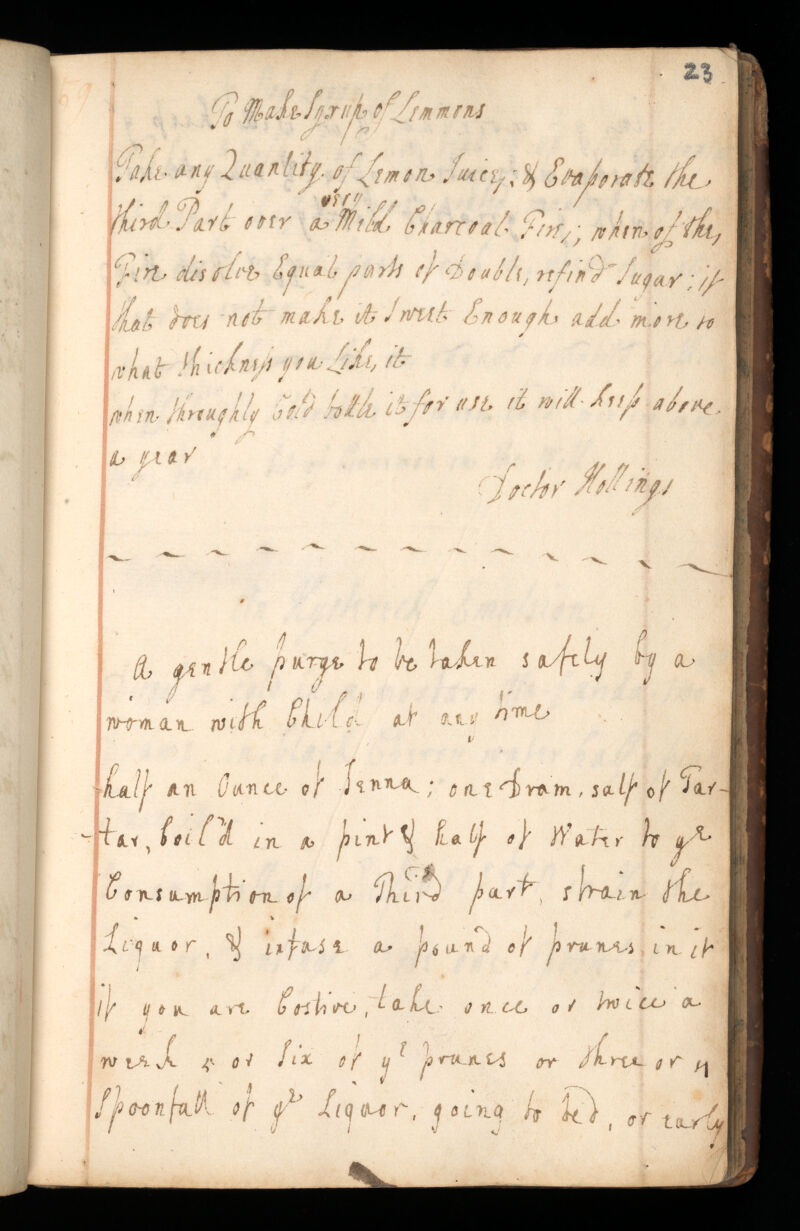 23
To Make Syrup of Lemmons
Take any Quantity of Lemon Juice; & Evaporate the
very
third Part over a Mild Charcoal Fire; when of the
Fire disolve Equal parts of Double refin'd Sugar: if
that does not make it Sweet Enough add more to
what thickness you Like it
when throughly Cold bottle it for use it will keep above
a year
Doctor Hollings
A gentle purge to be taken safely by a
woman with Child at any time
half an Ounce of Senna; one Dram, salt of Tar-
tar, boil'd in a pint & half of Water to ye
Consumption of a Third part, strain the
Liquor, & infuse a pound of prunes in it
if you are Costive, take once or twice a
week 5 or Six of ye prunes or three or 4
Spoonfull of ye Liquor, going to bed, or early